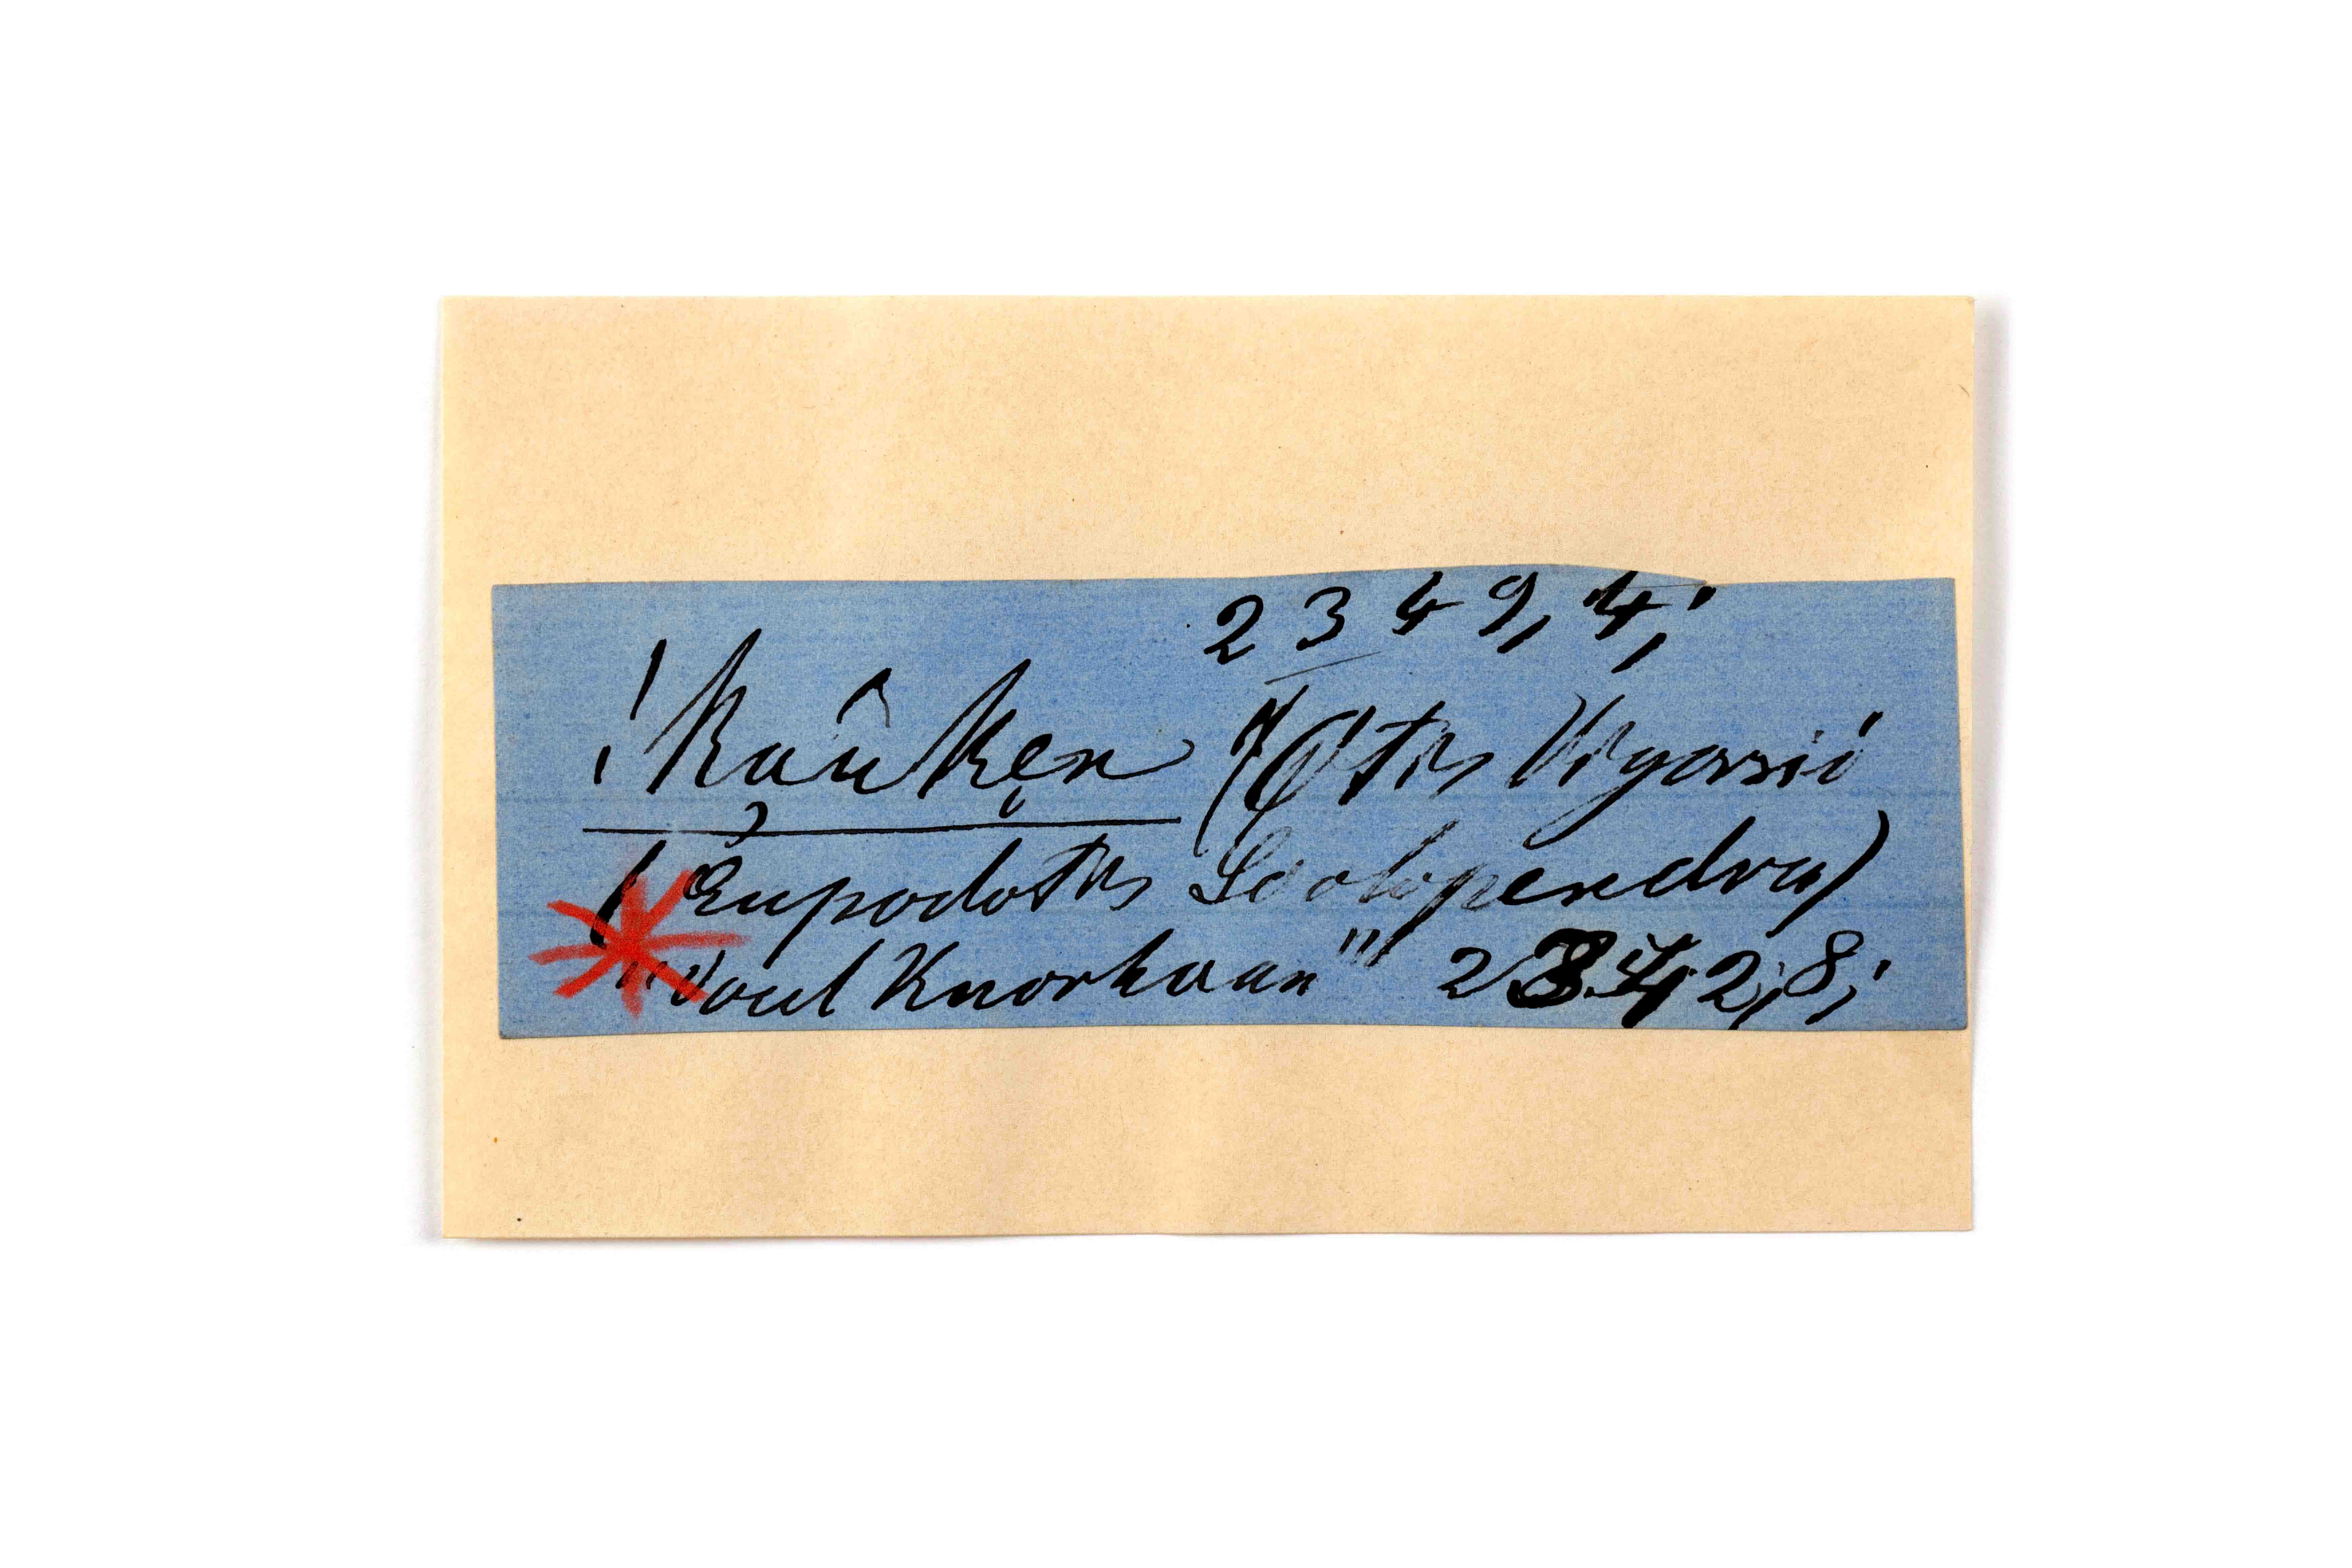 2349, 4,'
!kau͡ken (Otis Vigorsii
(Eupodotis Scolopendra)
"Voul Knorhaan" 2342, 8;